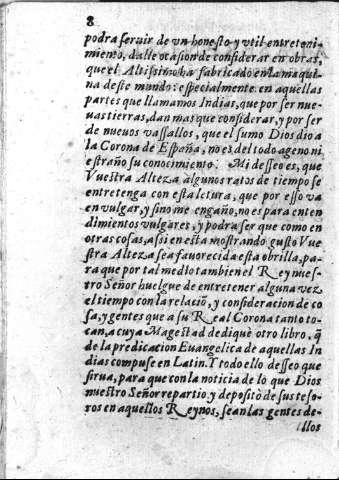 8
podra seruir de vn honesto y vtil entreteni-
miento, dalle ocasion de considerar en obras,
que el Altissimo ha fabricado en la maqui-
na deste mundo: especialmente en aquellas
partes que llamamos Indias, que por ser nue-
uas tierras, dan mas que considerar, y por ser
de nueuos vassallos, que el sumo Dios dio a
la Corona de España, no es del todo ageno ni
estraño su conocimiento. Mi desseo es, que
Vuestra Alteza algunos ratos de tiempo se
entretenga con esta letura, que por esso va
en vulgar, y sino me engaño, no es para enten
dimientos vulgares, y podra ser que como en
otras cosas, assi en esta mostrando gusto Vue
stra Alteza sea fauorecida esta obrilla, pa-
ra que por tal medio tambien el Rey nues-
tro Señor huelgue de entretener alguna vez
el tiempo con la relaciõ, y consideracion de co
sa, y gentes que a su Real Corona tanto to-
can, a cuya Magestad dediquè otro libro, q̃
de la predicacion Euangelica de aquellas In
dias compuse en Latin. Y todo ello desseo que
sirua, para que con la noticia de lo que Dios
nuestro Señor repartio y deposito de sus teso-
ros en aquellos Reynos, sean las gentes de-
llos